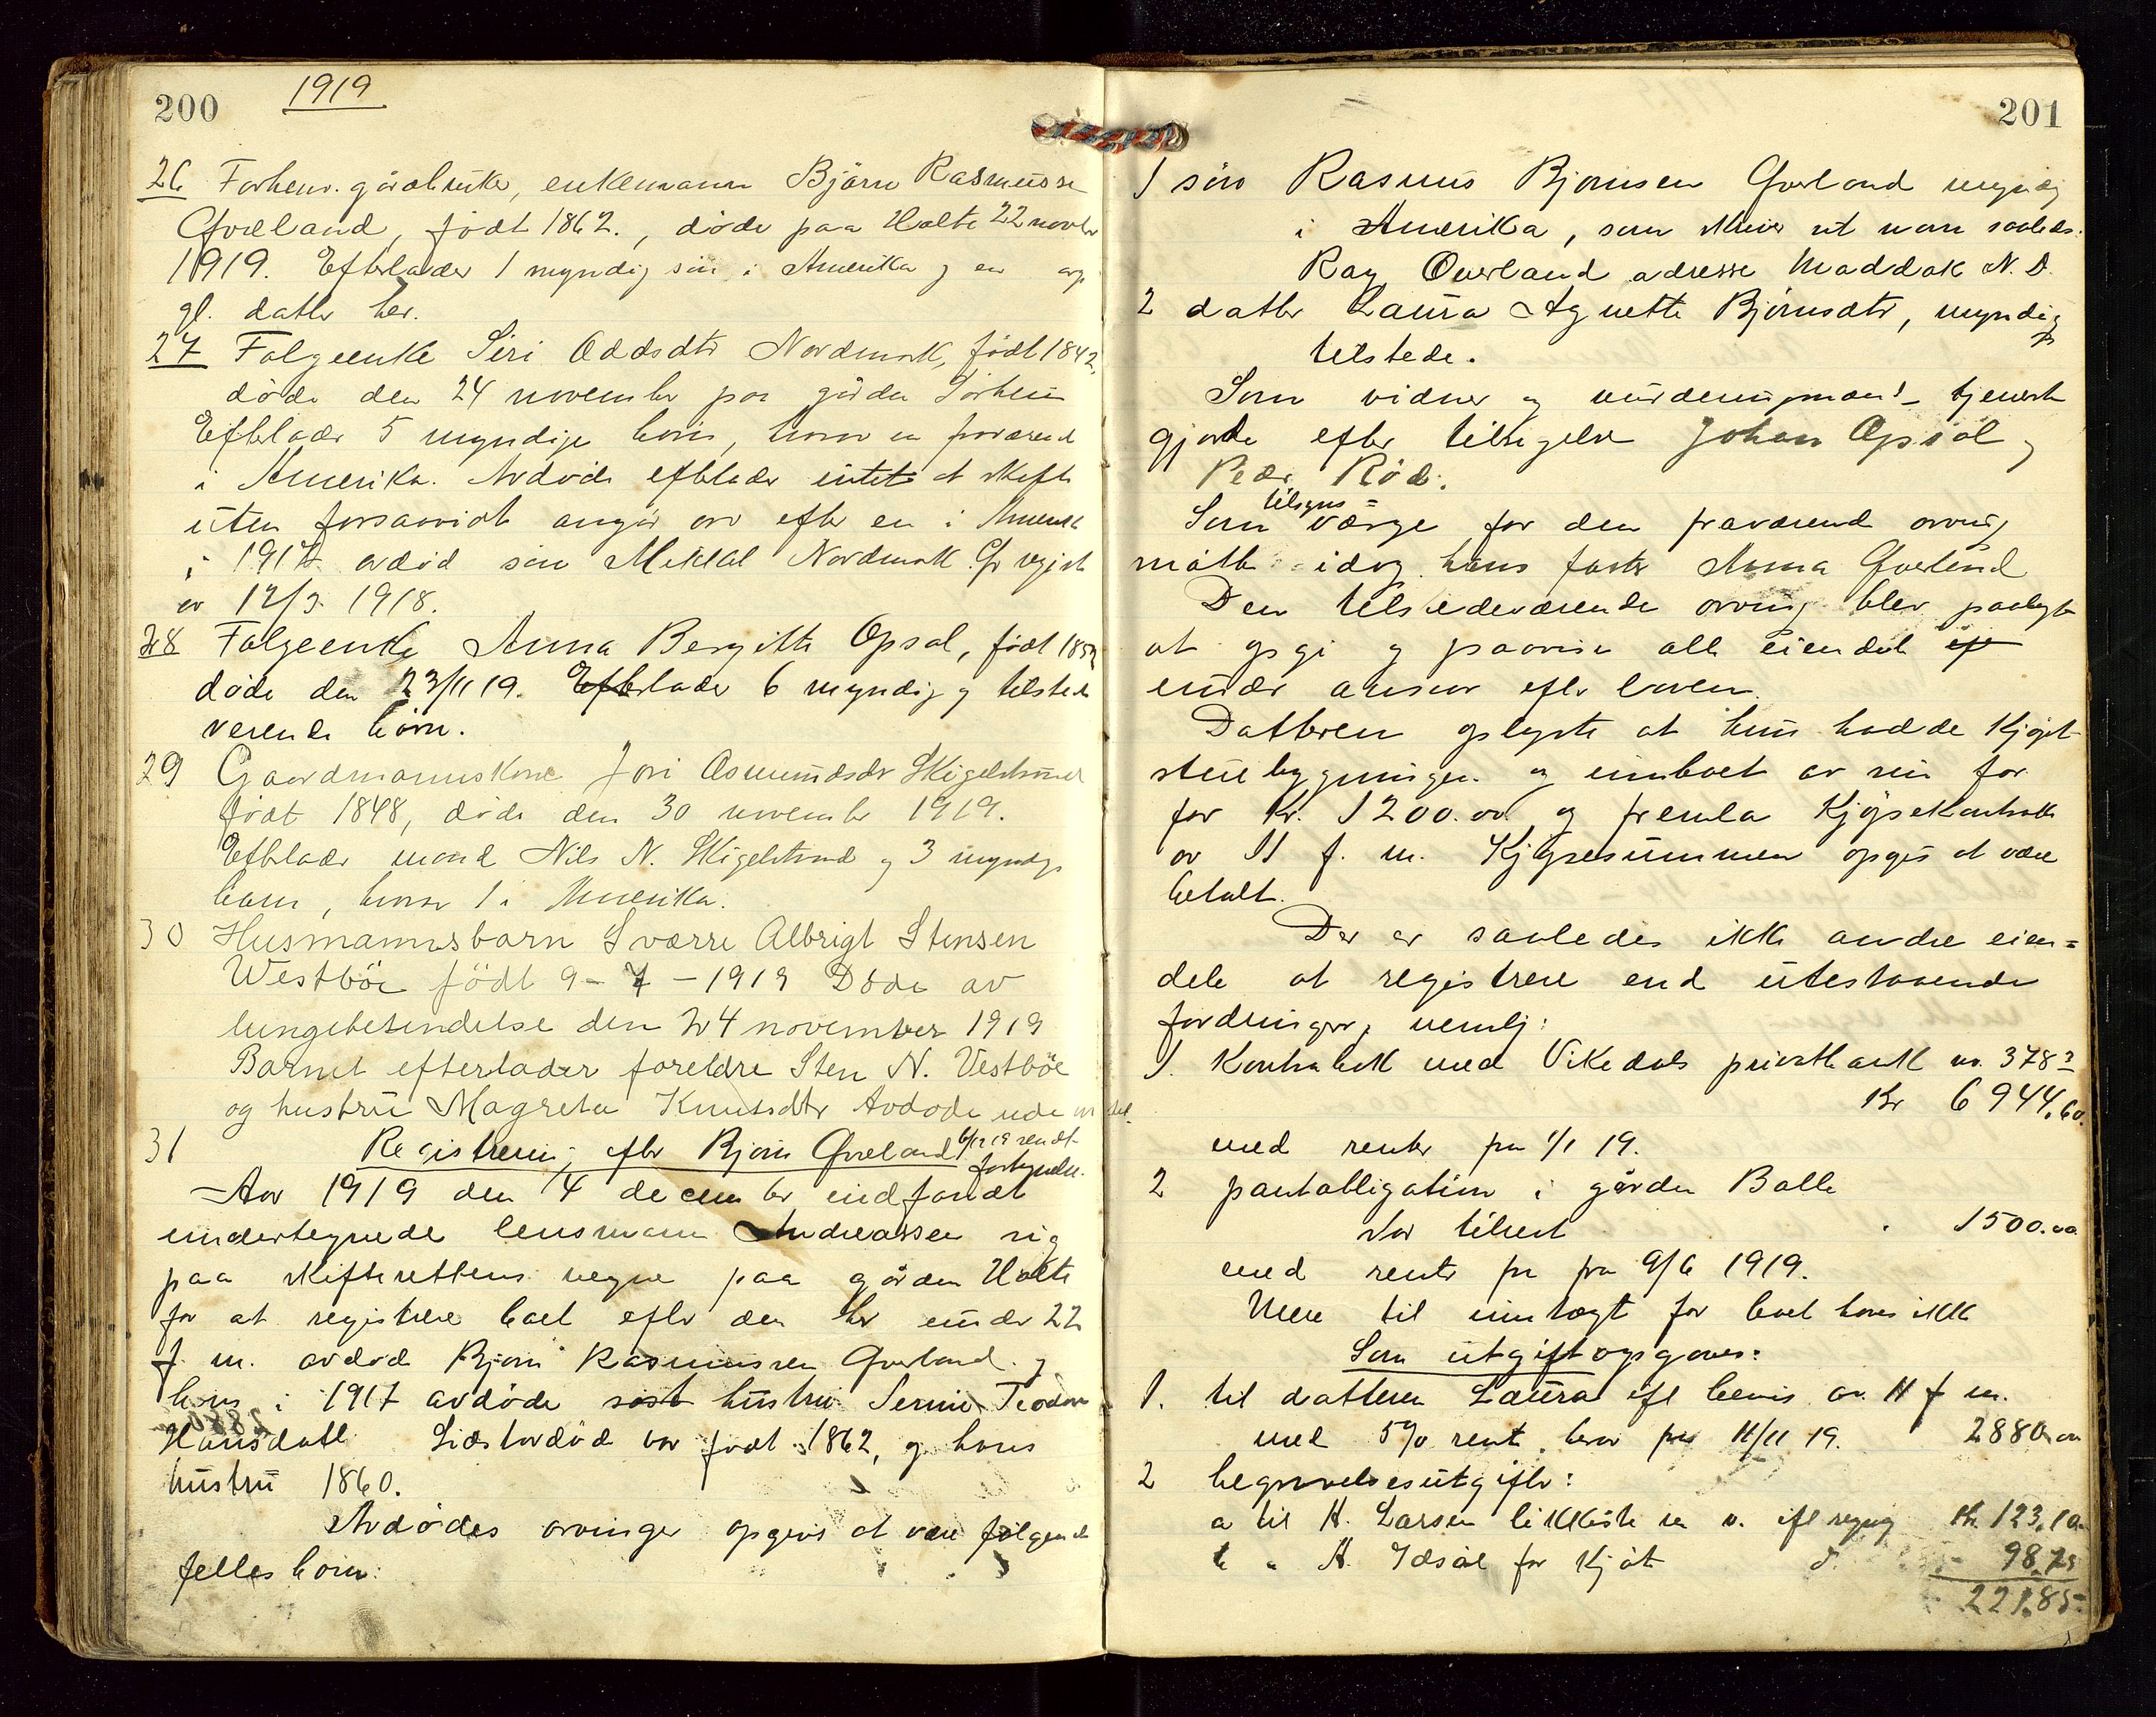 200
1919
26 Forhenv. gårdbruker, enkemann Björn Rasmussen
Qveland, født 1862., døde paa Halte 22 novbr
1919. Efterlader 1 myndig sön i Amerika og en og
gl. datter her.
27 Folgeenke Siri Oddsdtr Nordmork, født 1842,
døde den 24 november paa gården Sörheim
Efterlader 5 myndige born, hvorav en fraværend
i Amerika. Avdøde efterlader intet at skifte
uten forsaavidt angår arv efter en i Amerik
i 1917 avdød sön Mikkal Nordmork. Cfr regist
av 12/3 1918.
28 Folgeenke Anna Bergitte Opsal, født 1852
døde den 23/11 19. Efterlader 6 myndig og tilstede
verende børn.
29 Gaardmannskone Jori Osmundsdr Skigelstrand
født 1848, døde den 30 november 1919.
Efterlader mand Nils N. Skigelstrand og 3 myndige
barn, hvorav 1 i Amerika.
30 Husmannsbarn Sværre Albrigt Stensen
Westböe födt 9-7-1919 Döde av
lungebetendelse den 24 november 1919
Barnet efterlader foreldre Sten N. Vestböe
og hustru Magreta Knutsdtr Avdøde uden midel.
31 Registrering efter Bjørn Qveland 6/12 19 sendt
forkynelse.
Aar 1919 den 4 december indfandt
undertegnede lensmann Andreassen sig
paa skifterettens vegne paa gården Halte
for at registrere boet efter den her under 22
f. m. avdød Bjørn Rasmussen Qveland og
hans i 1917 avdøde hustru Serine Teodora
Hansdatter. Sidstavdød var født 1862, og hans
hustru 1860.
Avdødes arvinger opgives at være følgende
felles børn:
201
1 sön Rasmus Bjornsen Qverland myndig
i Amerika, som skriver sit navn saaledes:
Ray Overland adresse Maddok N. D.
2 datter Laura Agnette Bjørnsdtr, myndig og
tilstede.
Som vidner og vurderingsmænd tjeneste-
gjorde efter tilsigelse Johan Opsal og
Peder Röd.
Som tilsyns=værge for den fraværende arving
møtte idag hans faster Anna Qverland
Den tilstedeværende arving blev paalagt
at opgi og paavise alle eiendele
under ansvar efter loven.
Datteren oplyste at hun hadde kjøpt
stuebygningen og innboet av sin far
for kr. 1200.00 og fremla kjøpekontrakt
av 11 f. m. Kjøpesummen opgis at være
betalt.
Der er saaledes ikke andre eien=
dele at registrere end utestaaende
fordringer, nemlig:
1. Kontrabok med Vikedals privatbank no. 3783
kr 6944,60.
med renter fra 1/1 19.
2 pantobligation i gården Balle
stor tilrest " 1500.00
med rente fra 9/6 1919.
Mere til inntægt for boet haves ikke
Som utgift opgaves:
1. til datteren Laura ifl bevis av 11 f m.
med 5% rente herav fra 11/11 19. 2880.00
2 begravelsesutgifter:
a til H. Larsen likkiste m v. ifl regning kr. 123,10
b " A. Idsöe for kjöt do 98.75
221.85